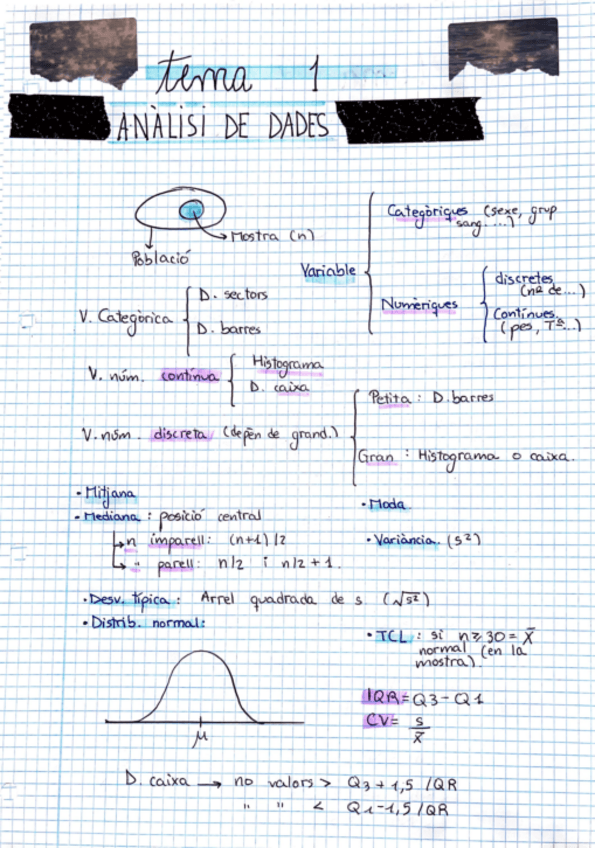 tema 1
ANÀLISI DE DADES
Població
Mostra (n)
Variable
Categòriques (sexe, grup
sang. ...)
Numèriques
discretes
(nº de...)
Contínues
(pes, Tª...)
V. Categòrica
D. sectors
D. barres
V. núm. contínua
Histograma
D. caixa
V. núm. discreta (depèn de grand.)
Petita : D. barres
Gran : Histograma o caixa.
• Mitjana
• Mediana : posició central
n imparell: (n+1)/2
" parell: n/2 i n/2 + 1.
• Moda.
• Variància. (s²)
• Desv. típica : Arrel quadrada de s. (√s²)
• Distrib. normal:
μ
• TCL : si n ≥ 30 = x̄
normal (en la
mostra).
IQR = Q3 - Q1
CV = s
x̄
D. caixa → no valors > Q3 + 1,5 IQR
" " < Q1 - 1,5 IQR